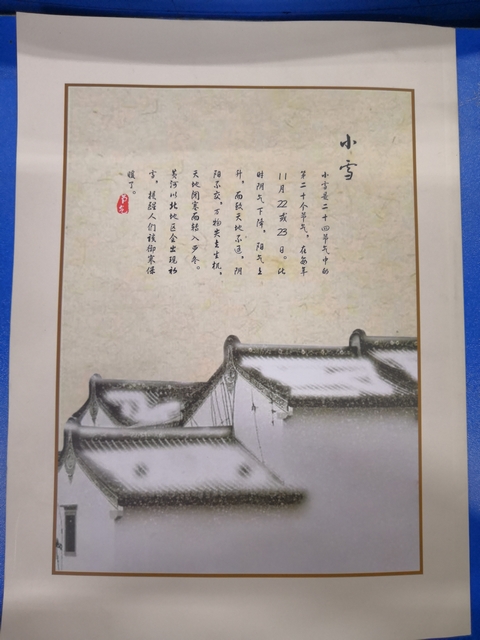 小雪
小雪是二十四节气中的
第二十个节气，在每年
11月22或23日。此
时阴气下降，阳气上
升，而致天地不通，阴
阳不交，万物失去生机，
天地闭塞而转入严冬。
黄河以北地区会出现初
雪，提醒人们该御寒保
暖了。